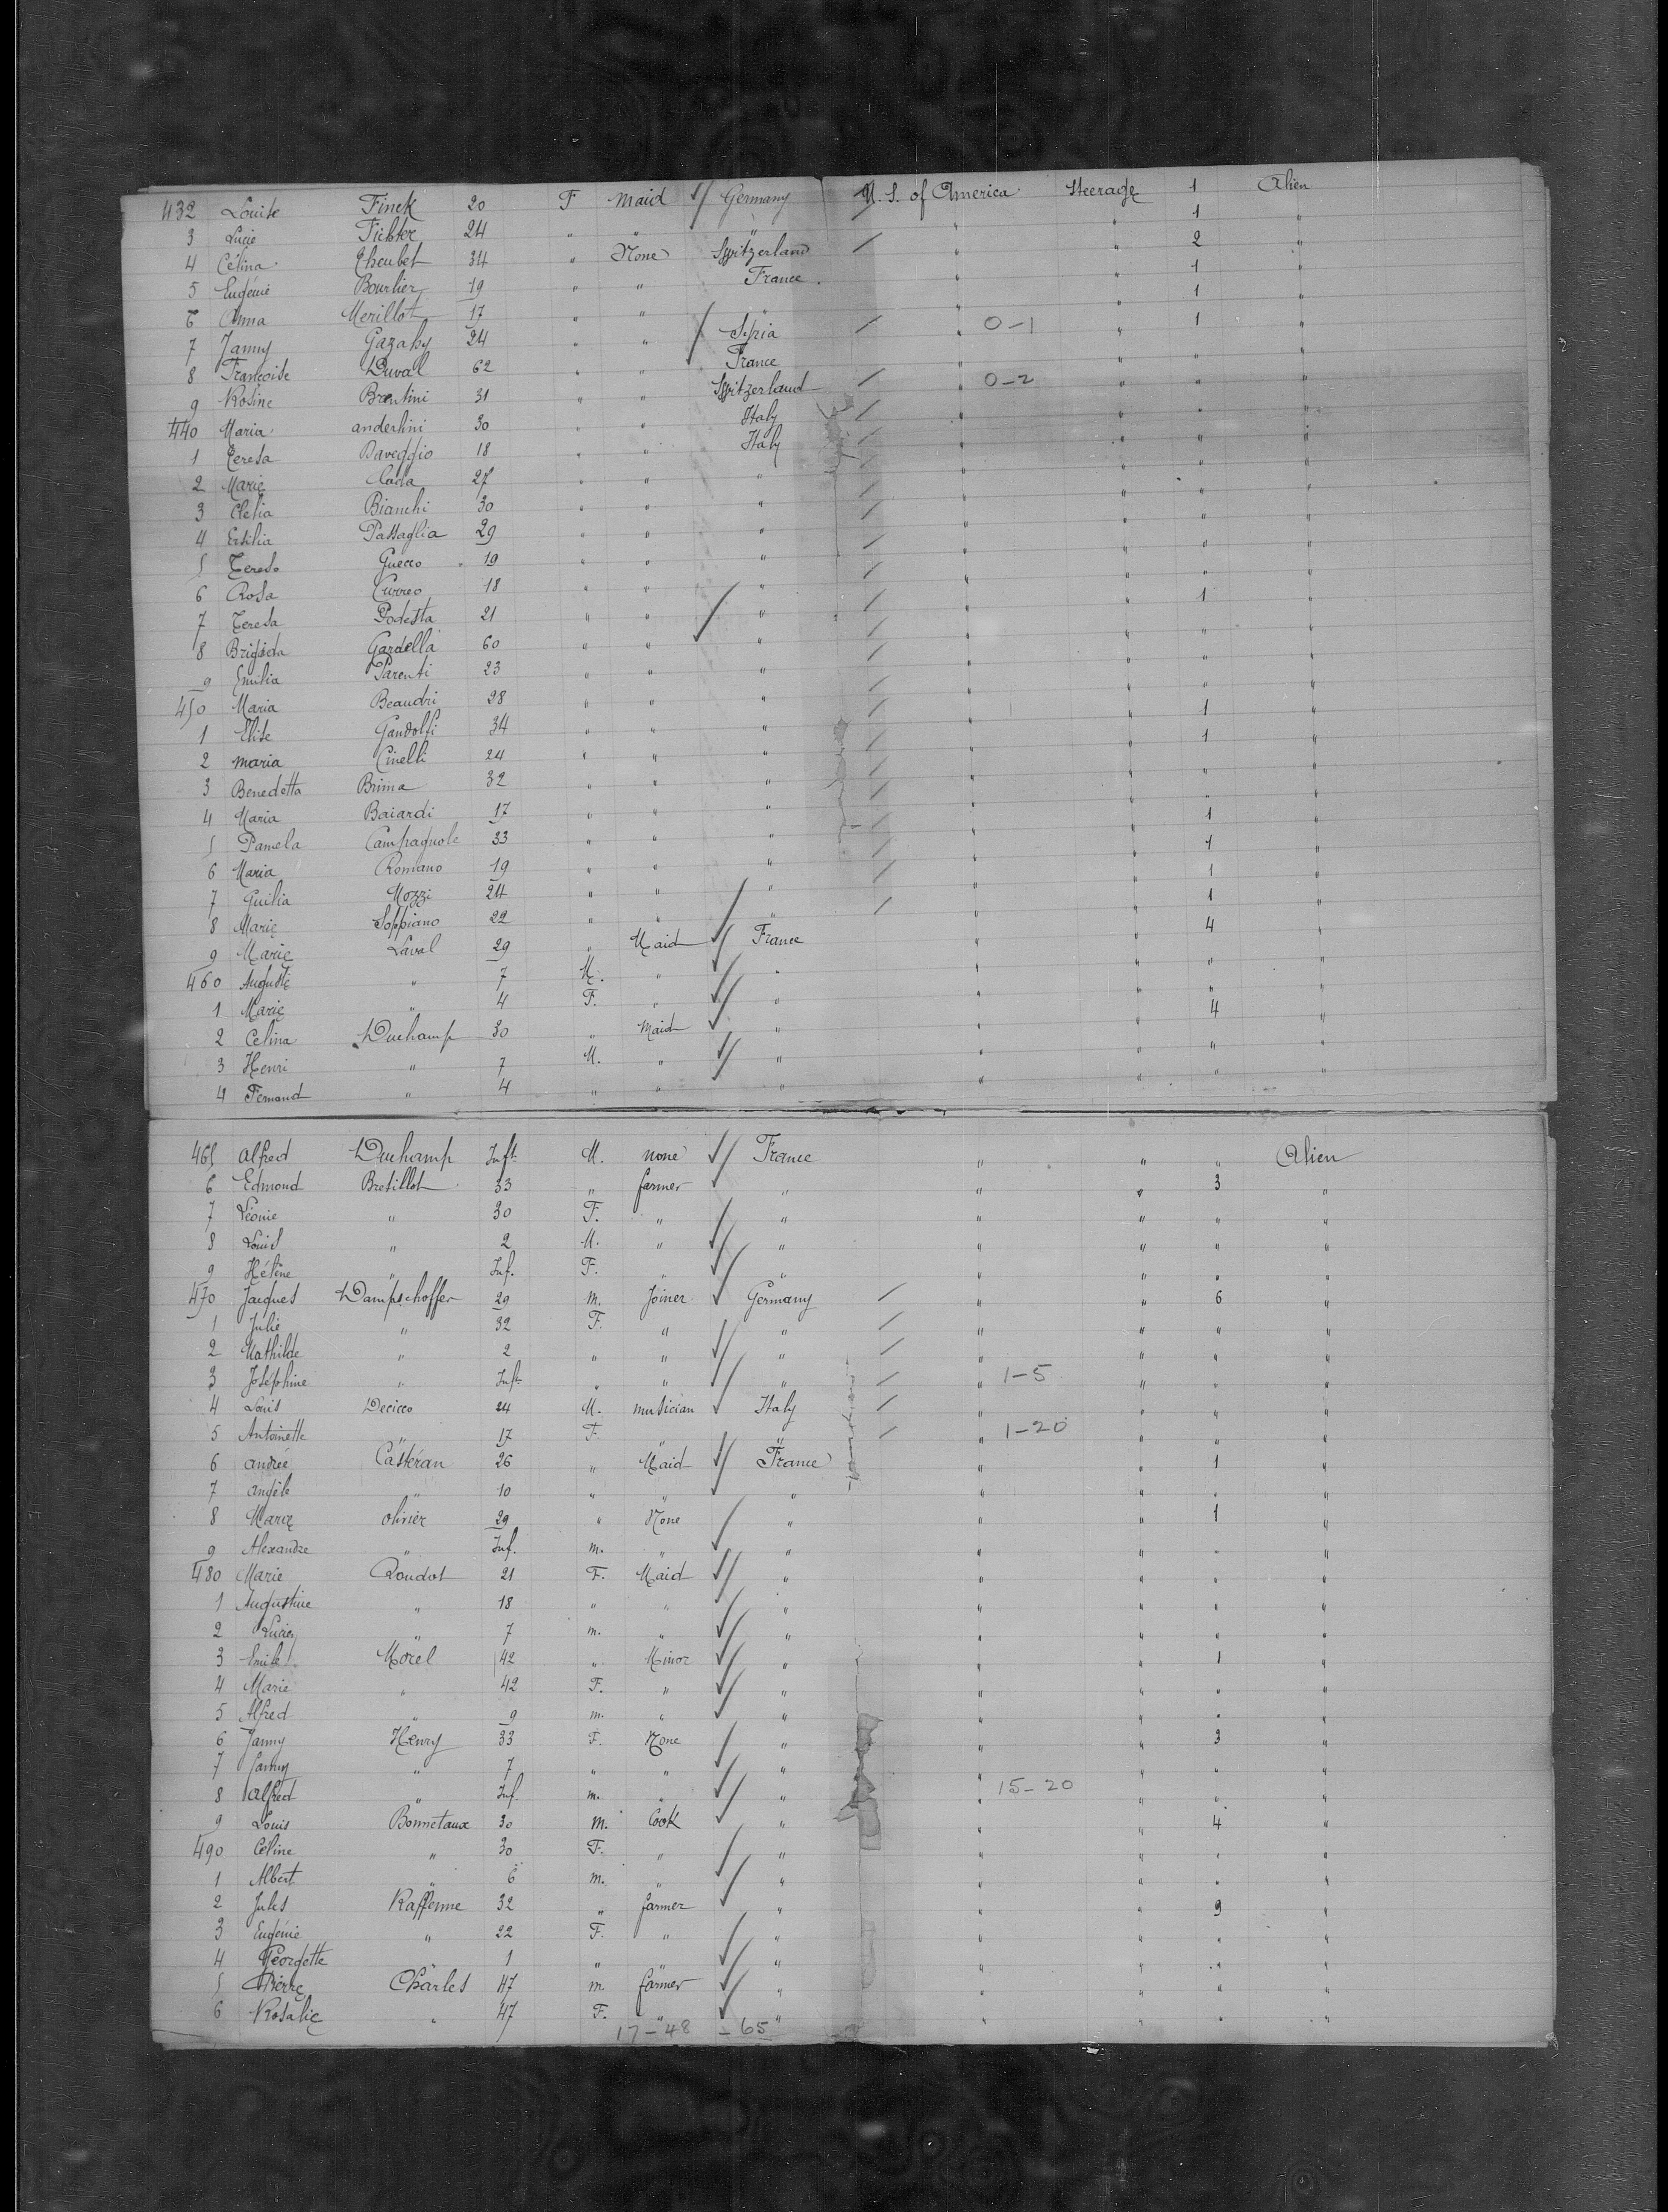 432 Louise Finck 20 F Maid Germany U. S. of America Steerage 1 Alien
3 Lucie Fichter 24 " " " " " 1 "
4 Célina Cheubet 34 " None Switzerland " " 2 "
5 Eugénie Bourlier 19 " " France " " 1 "
6 Anna Merillot 17 " " " " " 1 "
7 Jamny Gazaky 24 " " Syria " 0-1 " 1 "
8 Françoise Duval 62 " " France " " " "
9 Rosine Brentini 31 " " Switzerland " 0-2 " " "
440 Maria anderlini 30 " " Italy " " " "
1 Teresa Baveggio 18 " " Italy " " " "
2 Marie Cada 27 " " " " " " "
3 Cletia Bianchi 30 " " " " " " "
4 Ersilia Passaglia 29 " " " " " " "
5 Teresa Guecco 19 " " " " " " "
6 Rosa Curreo 18 " " " " " " "
7 Teresa Podesta 21 " " " " " 1 "
8 Brigida Gardella 60 " " " " " " "
9 Emilia Parenti 23 " " " " " " "
450 Maria Beaudri 28 " " " " " " "
1 Elise Gandolfi 34 " " " " " 1 "
2 maria Cinelli 24 " " " " " 1 "
3 Benedetta Brima 32 " " " " " " "
4 Maria Baiardi 17 " " " " " " "
5 Pamela Campagnole 33 " " " " " 1 "
6 Maria Romano 19 " " " " " 1 "
7 Guilia Mozzi 24 " " " " " 1 "
8 Marie Soppiano 22 " " " " " 1 "
9 Marie Laval 29 " Maid France " " 4 "
460 Auguste " 7 M. " " " " " "
1 Marie " 4 F. " " " " " "
2 Celina Duchamp 30 " Maid " " " 4 "
3 Henri " 7 M. " " " " " "
4 Fernand " 4 " " " " " " "
465 Alfred Duchamp Inft. M. none France " " " Alien
6 Edmond Bretillot 33 " farmer " " " 3 "
7 Léonie " 30 F. " " " " " "
8 Louis " 2 M. " " " " " "
9 Hélène " Inf. F. " " " " " "
470 Jacques Dampschoffer 29 m. Joiner Germany " " 6 "
1 Julie " 32 F. " " " " " "
2 Mathilde " 2 " " " " " " "
3 Joséphine " Inft. " " " " 1-5 " " "
4 Louis Decicco 24 M. musician Italy " " " "
5 Antoinette " 17 F. " " " 1-20 " " "
6 andrée Castéran 26 " Maid France " " 1 "
7 angèle " 10 " " " " " " "
8 Marie olivier 29 " None " " " 1 "
9 Alexandre " Inf. m. " " " " " "
480 Marie Roudot 21 F. Maid " " " " "
1 Augustine " 18 " " " " " " "
2 " 7 m. " " " " " "
3 Emile Morel 42 " Minor " " " 1 "
4 Marie " 42 F. " " " " " "
5 Alfred " 9 m. " " " " " "
6 Janny Henry 33 F. None " " " 3 "
7 " 7 " " " " " " "
8 Alfred " Inf. m. " " " 15-20 " " "
9 Louis Bonnetaux 30 m. Cook " " " 4 "
490 Céline " 30 F. " " " " " "
1 Albert " 6 m. " " " " " "
2 Jules Raffenne 32 " farmer " " " 9 "
3 Eugénie " 22 F. " " " " " "
4 Georgette " 1 " " " " " " "
5 Pierre Charles 47 m. farmer " " " " "
6 Rosalie " 47 F. " " " " " "
17-48 - 65